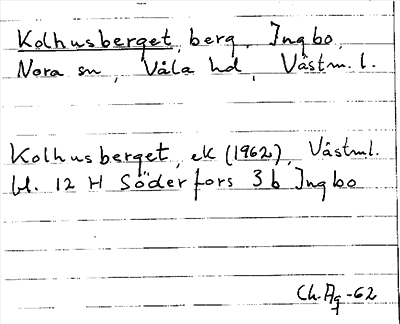 Kolhusberget, berg, Ingbo,
Nora sn, Våla hd, Västm. l.
Kolhusberget, ek (1962), Västml.
bl. 12 H Söderfors 3b Ingbo
Ch. Ag -62